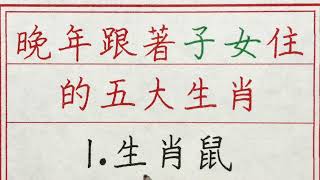 晚年跟著子女住
的五大生肖
1.生肖鼠